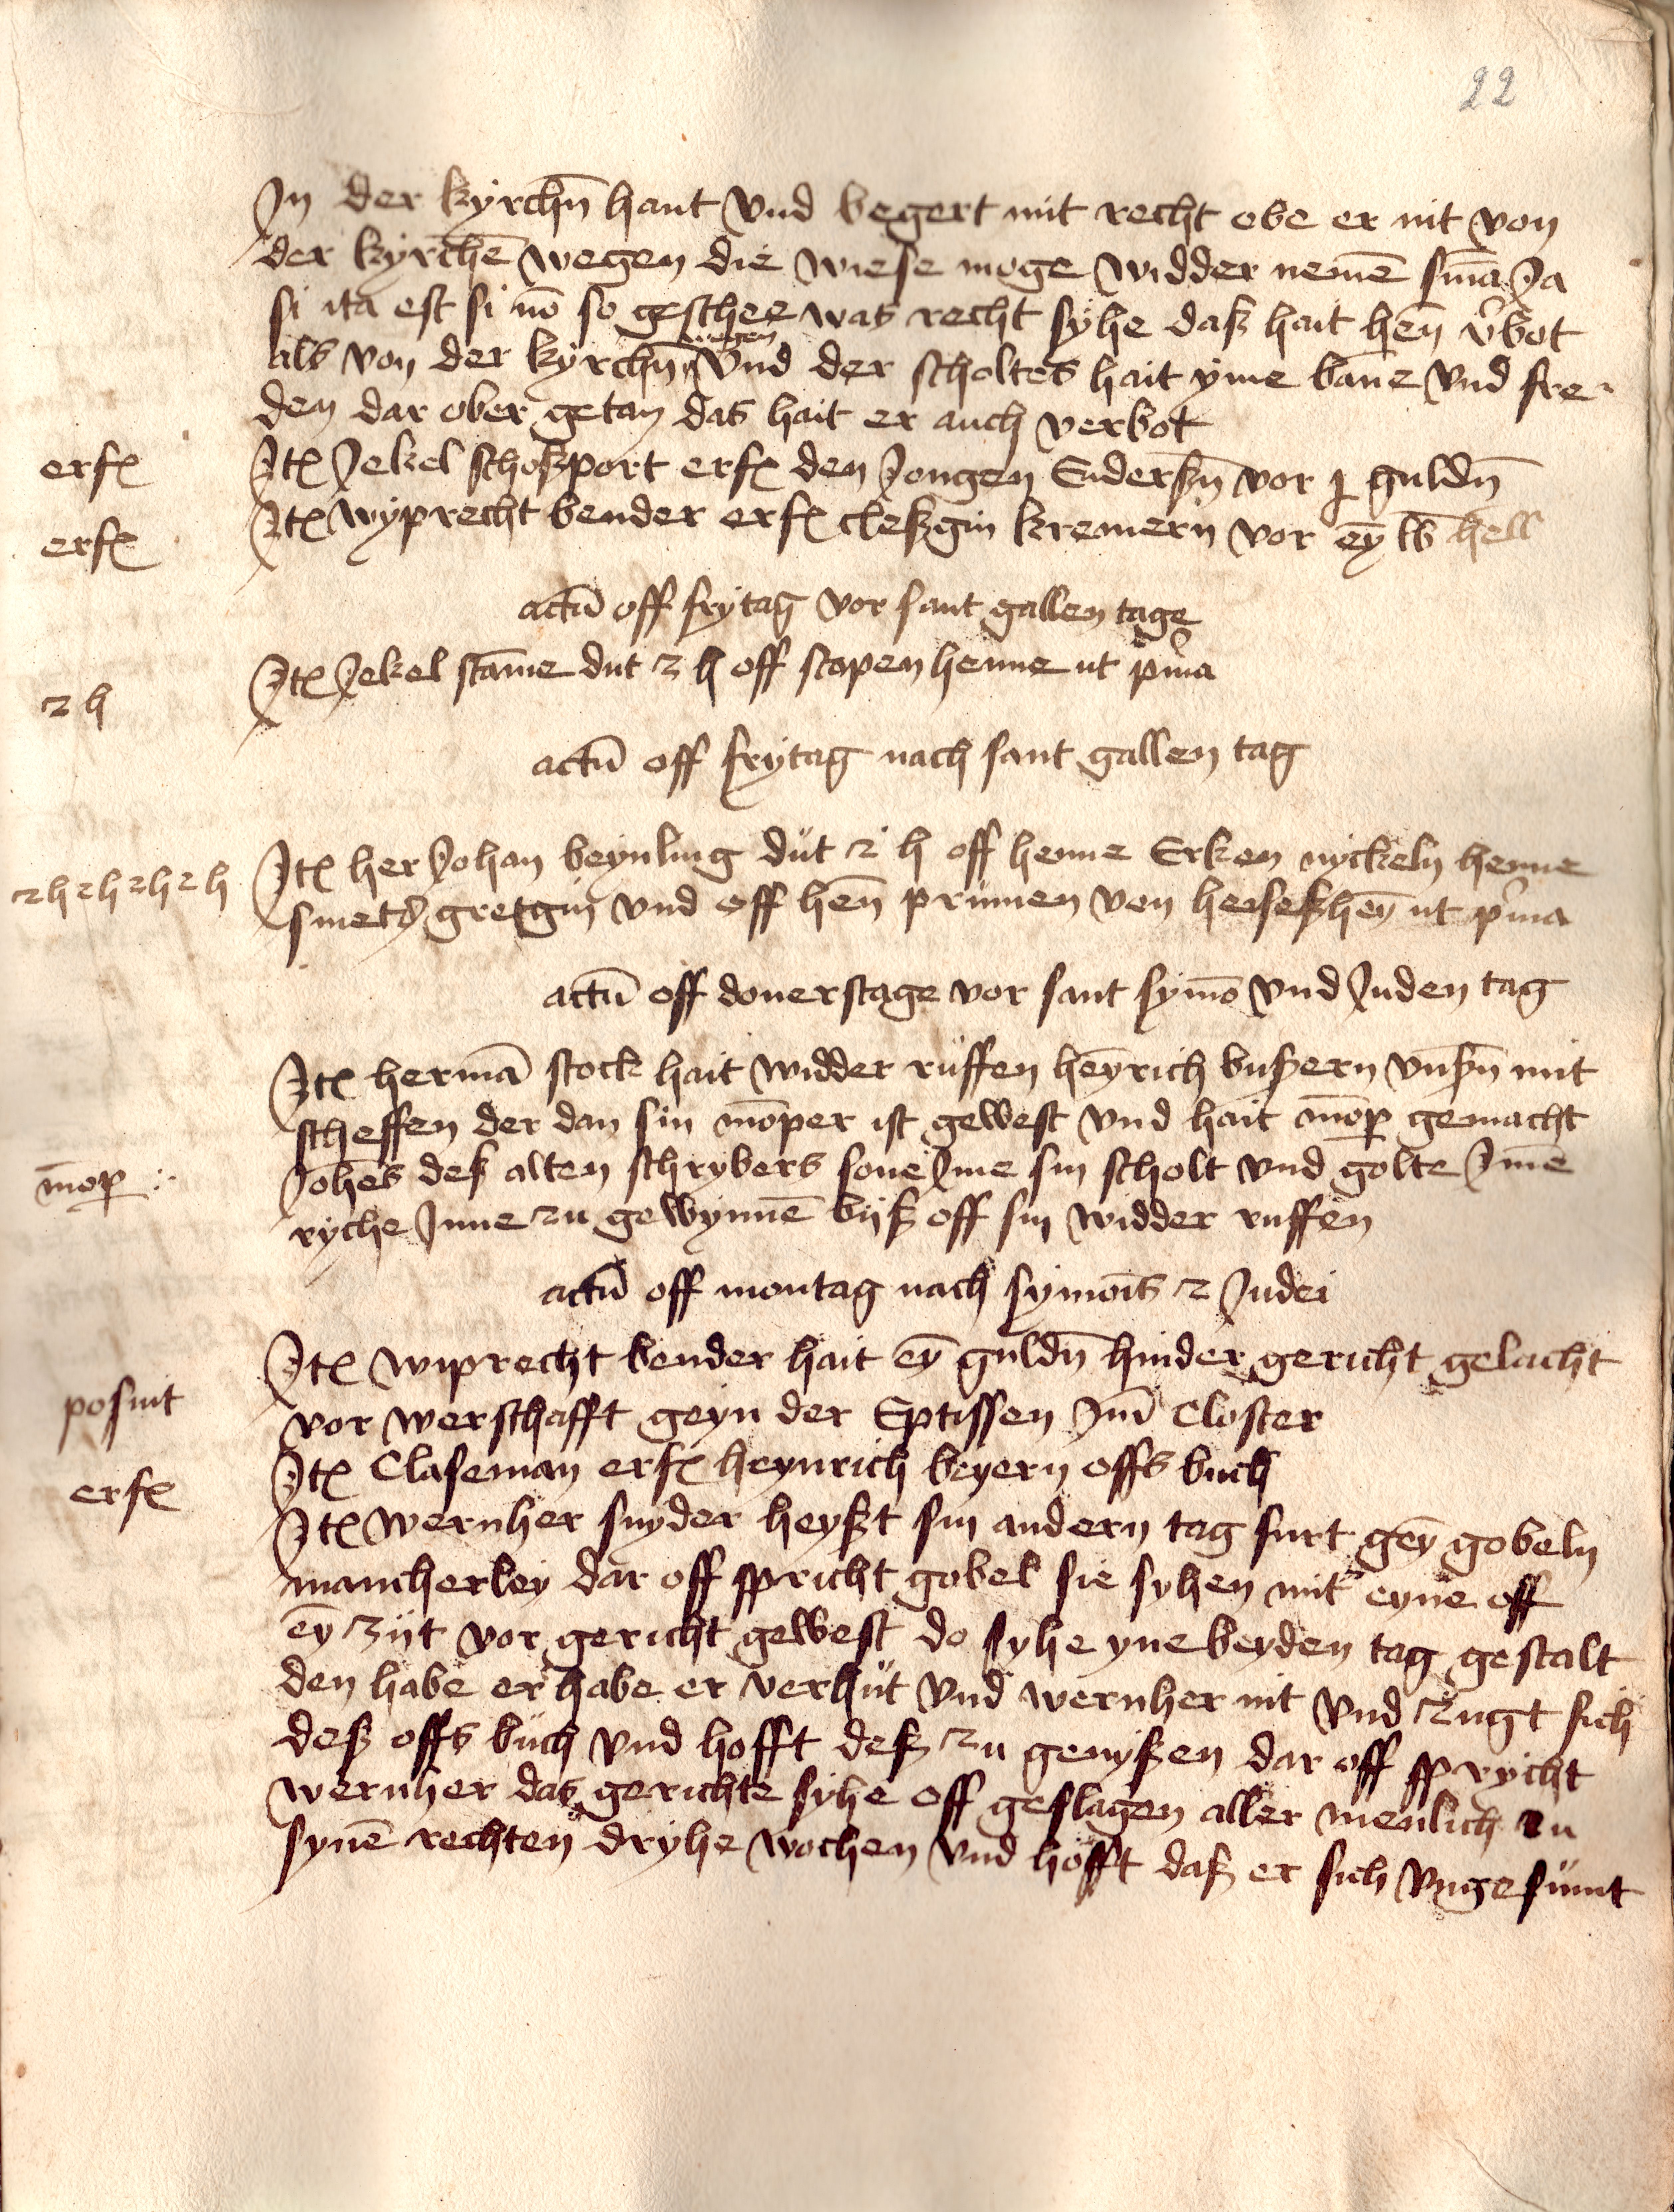 22
Jn der kyrchn̄ hant vnd begert mit recht obe er nit von
der kyrchē wegen die wiese moge widder nemē sn̄ia Ja
si ita est si nō so geschee was recht syhe daß hait hēn v̉bot
als von der kyrchn̄ wegen vnd der scholtes hait yme bāne vnd fre-
den dar ober getan das hait er auch verbot
erfꝭ
Jtꝭ Jekel schoßport erfꝭ den Jongen Enderßn̄ vor j guldn̄
erfꝭ
Jtꝭ wyprecht bender erfꝭ cleßgin kremern vor eȳ lb hell
actū off frytag vor sant gallen tage
2 h
Jtꝭ Jekel stāme dut 2 h off stopen henne ut p̉ma
actū off frytag nach sant gallen tag
2 h 2 h 2 h 2 h
Jtꝭ her Johan beynling düt 2 h off henne Erken nyckeln henne
smetꝭ gretgin vnd off hēn prümen von heiseßhēn ut p̉ma
actū off donerstage vor sant symō vnd Juden tag
Jtꝭ hermā stock hait widder rüffen heȳrich bußern vnßn̄ mit
scheffen der dan sin mōper ist gewest vnd hait mōp gemacht
mōp
Johēs deß alten schrybers sone Jme sin scholt vnd golte Jn̄ie
ryche Jnne zu gewynnē bijß off sin widder ruffen
actū off montag nach symōis 2 Judei
Jtꝭ wiprecht bender hait eȳ guldn̄ hinder gericht gelacht
posuit
vor werschafft geyn der Eptissen Jm̄ Closter
erfꝭ
Jtꝭ Claseman erfꝭ heynrich beyern offs buch
Jtꝭ wernher snyder heyßt sin andern tag furt geȳ gobeln
mancherley dar off spricht gobel sie syhen mit eyne off
eȳ zijt vor gericht gewest do syhe yne beyden tag gestalt
den habe er habe er verhüt vnd wernher nit vnd zugt sich
deß offs büch vnd hofft deß zu genyßen dar off sprycht
wernher das gerichte syhe off geslagen aller menlich zu
synē rechten dryhe wochen vnd hofft daß er sich vngesümt